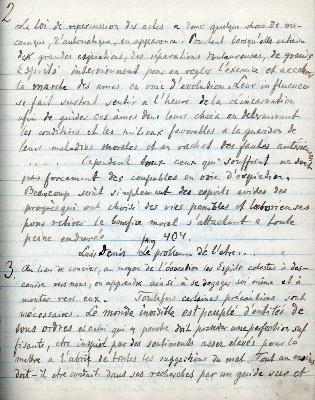 2
La loi de repercussion des actes a donc quelque chose de me-
canique, d'automatique, en apparence. Pourtant lorsqu'elle entraine
de grandes expiations, des réparations douloureuses, de grands
Esprits interviennent pour en regler l'exercice et acceler
la marche des ames en voie d'evolution. Leur influence
se fait surtout sentir a l'heure de la réincarnation
afin de guider ces ames dans leurs choix en determinant
les conditions et les milieux favorables a la guerison de
leurs maladies morales et au rachat des fautes antérieures
.... Cependant tous ceux qui souffrent ne sont
pas forcement des coupables en voie d'expiation.
Beaucoup sont simplement des esprits avides de
progrès qui ont choisi des vies penibles et laborieuses
pour retirer le benefice moral s'attachant a toute
peine endurée pag 404.
Léon Denis Le problème de l'être..
3 Au lieu de convier, au moyen de l'evocation les Esprits celestes à des-
cendre vers nous, on apprendra ainsi a se degager soi même et à
monter vers eux. Toutefois certaines précautions sont
necessaires. Le monde invisible est peuplé d'entités de
tous ordres et celui qui y penetre doit posseder une perfection suf
fisante, être inspiré par des sentiments assez elevés pour le
mettre a l'abri de toutes les suggestions du mal. Tout au moins
doit-il être conduit dans ses recherches par un guide sur et